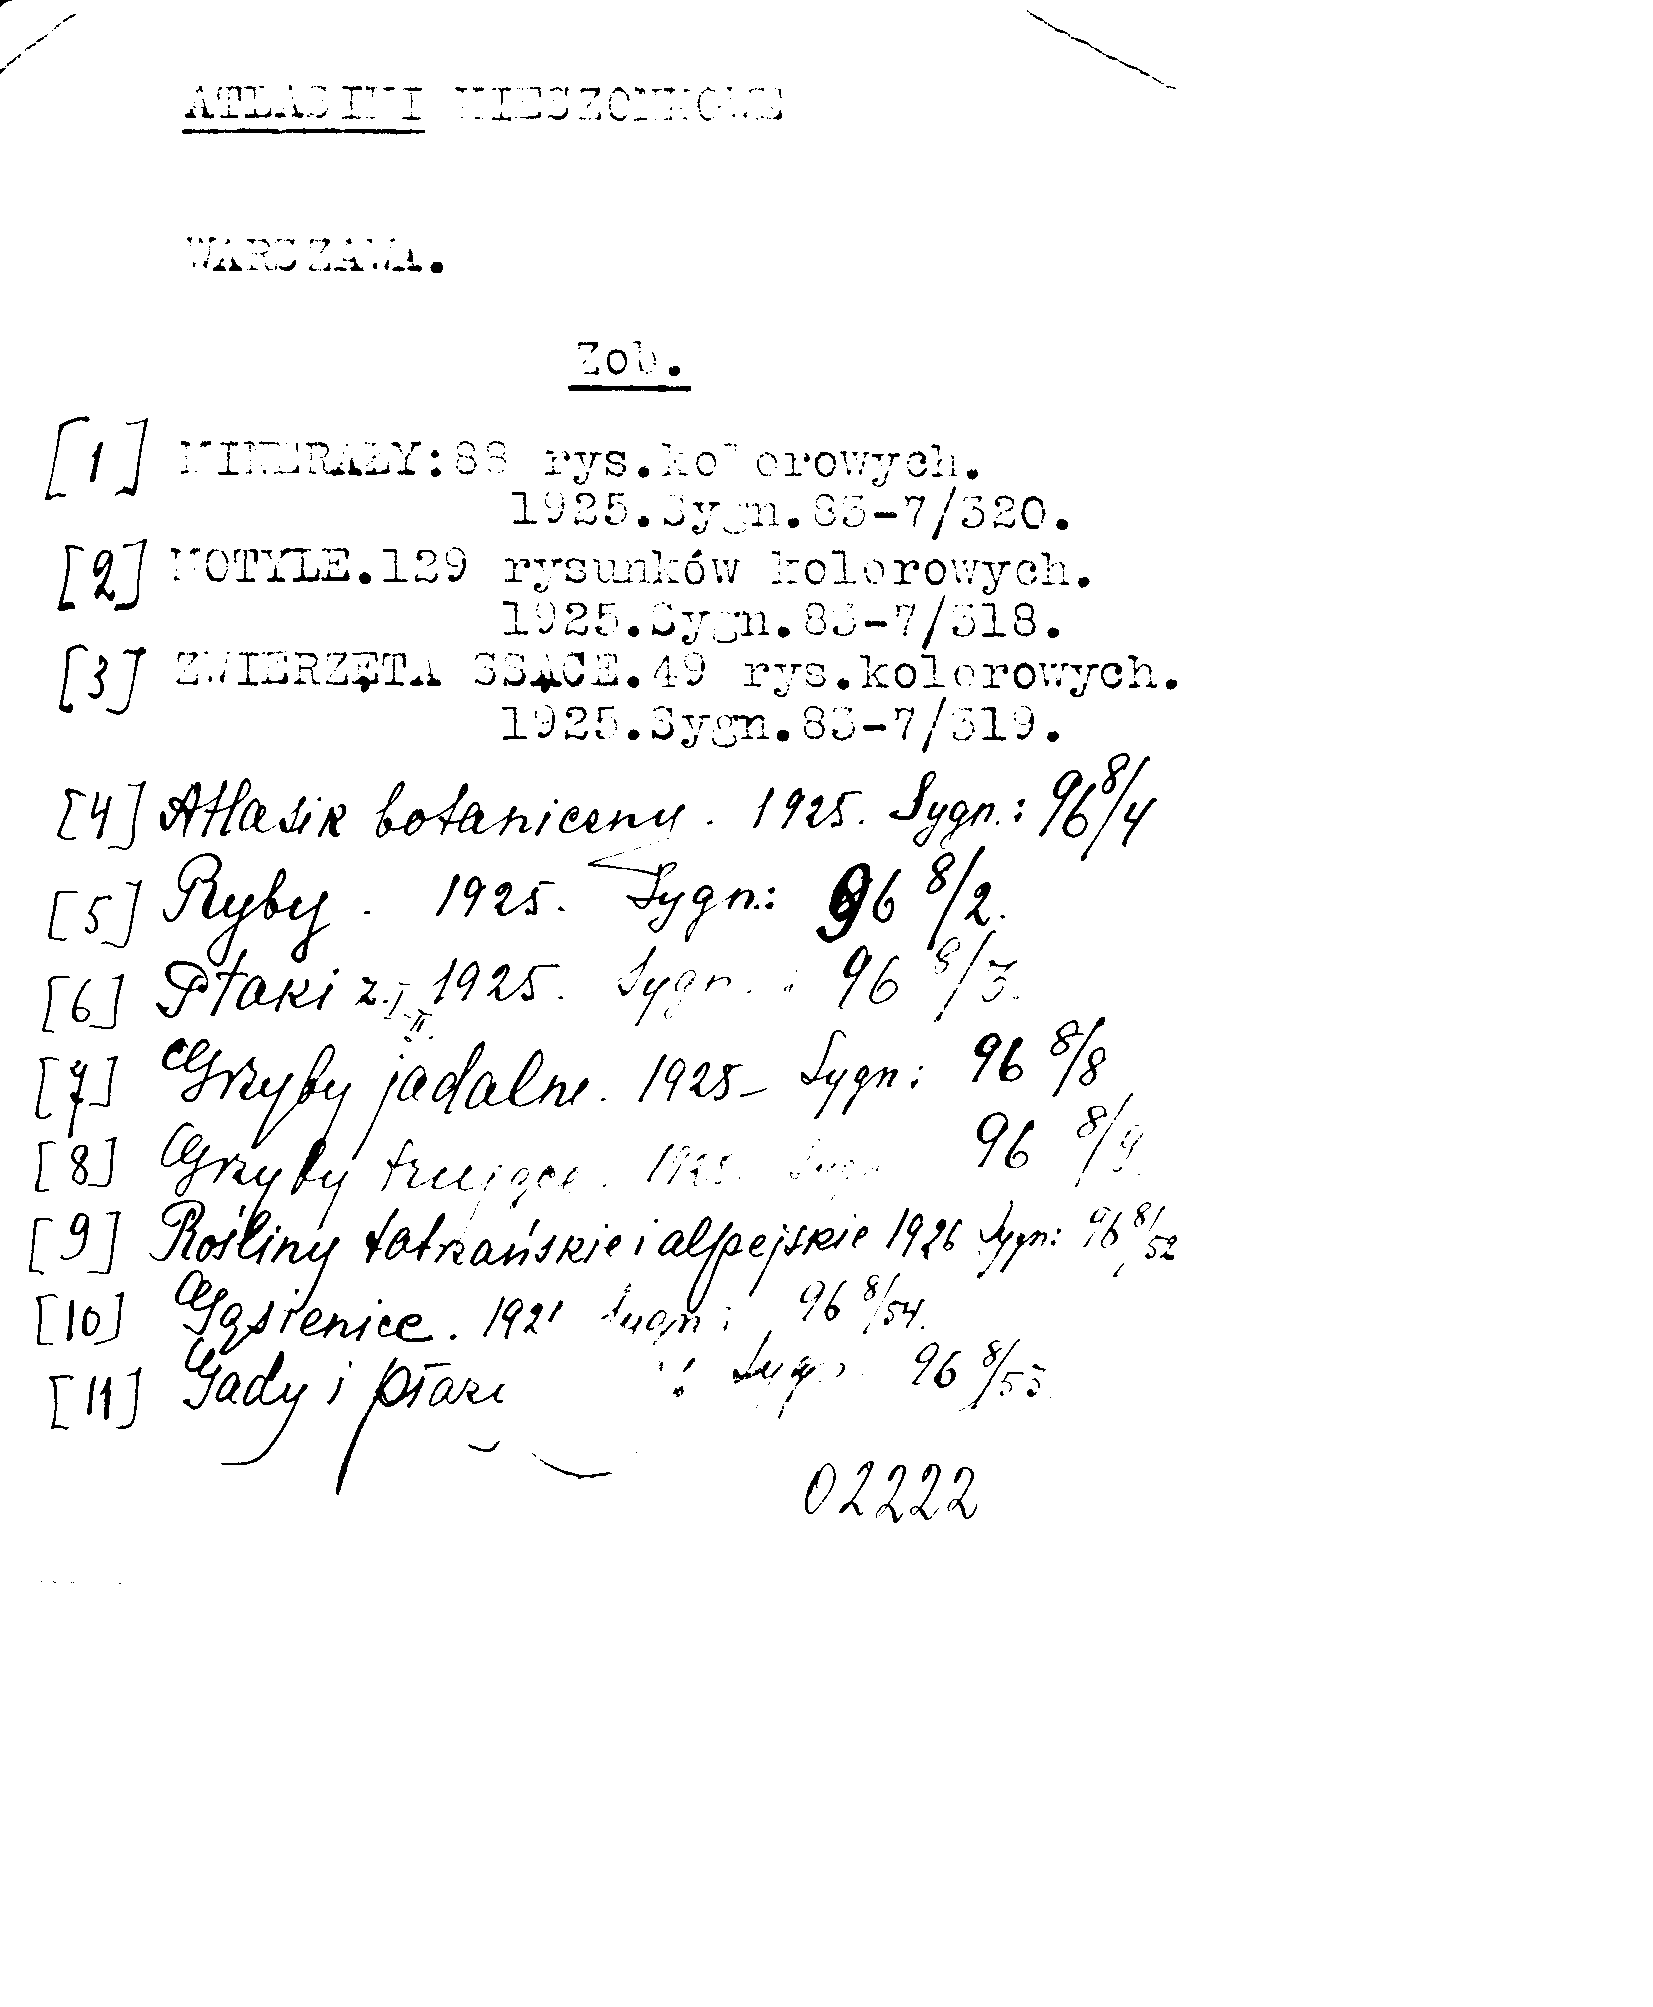 ATLASIKI KIESZONKOWE
WARSZAWA.
Zob.
[1] MINERAŁY:88 rys.kolorowych.
1925.Sygn.83-7/320.
[2] MOTYLE.129 rysunków kolorowych.
1925.Sygn.83-7/318.
[3] ZWIERZĘTA SSĄCE.49 rys.kolorowych.
1925.Sygn.83-7/319.
[4] Atlasik botaniczny. 1925. Sygn.: 96 8/4
[5] Ryby. 1925. Sygn.: 96 8/2.
[6] Ptaki z. I-II. 1925. Sygn.: 96 8/3.
[7] Grzyby jadalne. 1925- Sygn: 96 8/8
[8] Grzyby trujące. 1925. Sygn 96 8/9.
[9] Rośliny tatrzańskie i alpejskie 1926 Sygn: 96 8/52
[10] Gąsienice. Sygn: 96 8/54.
[11] Gady i płazy Sygn 96 8/53.
02222